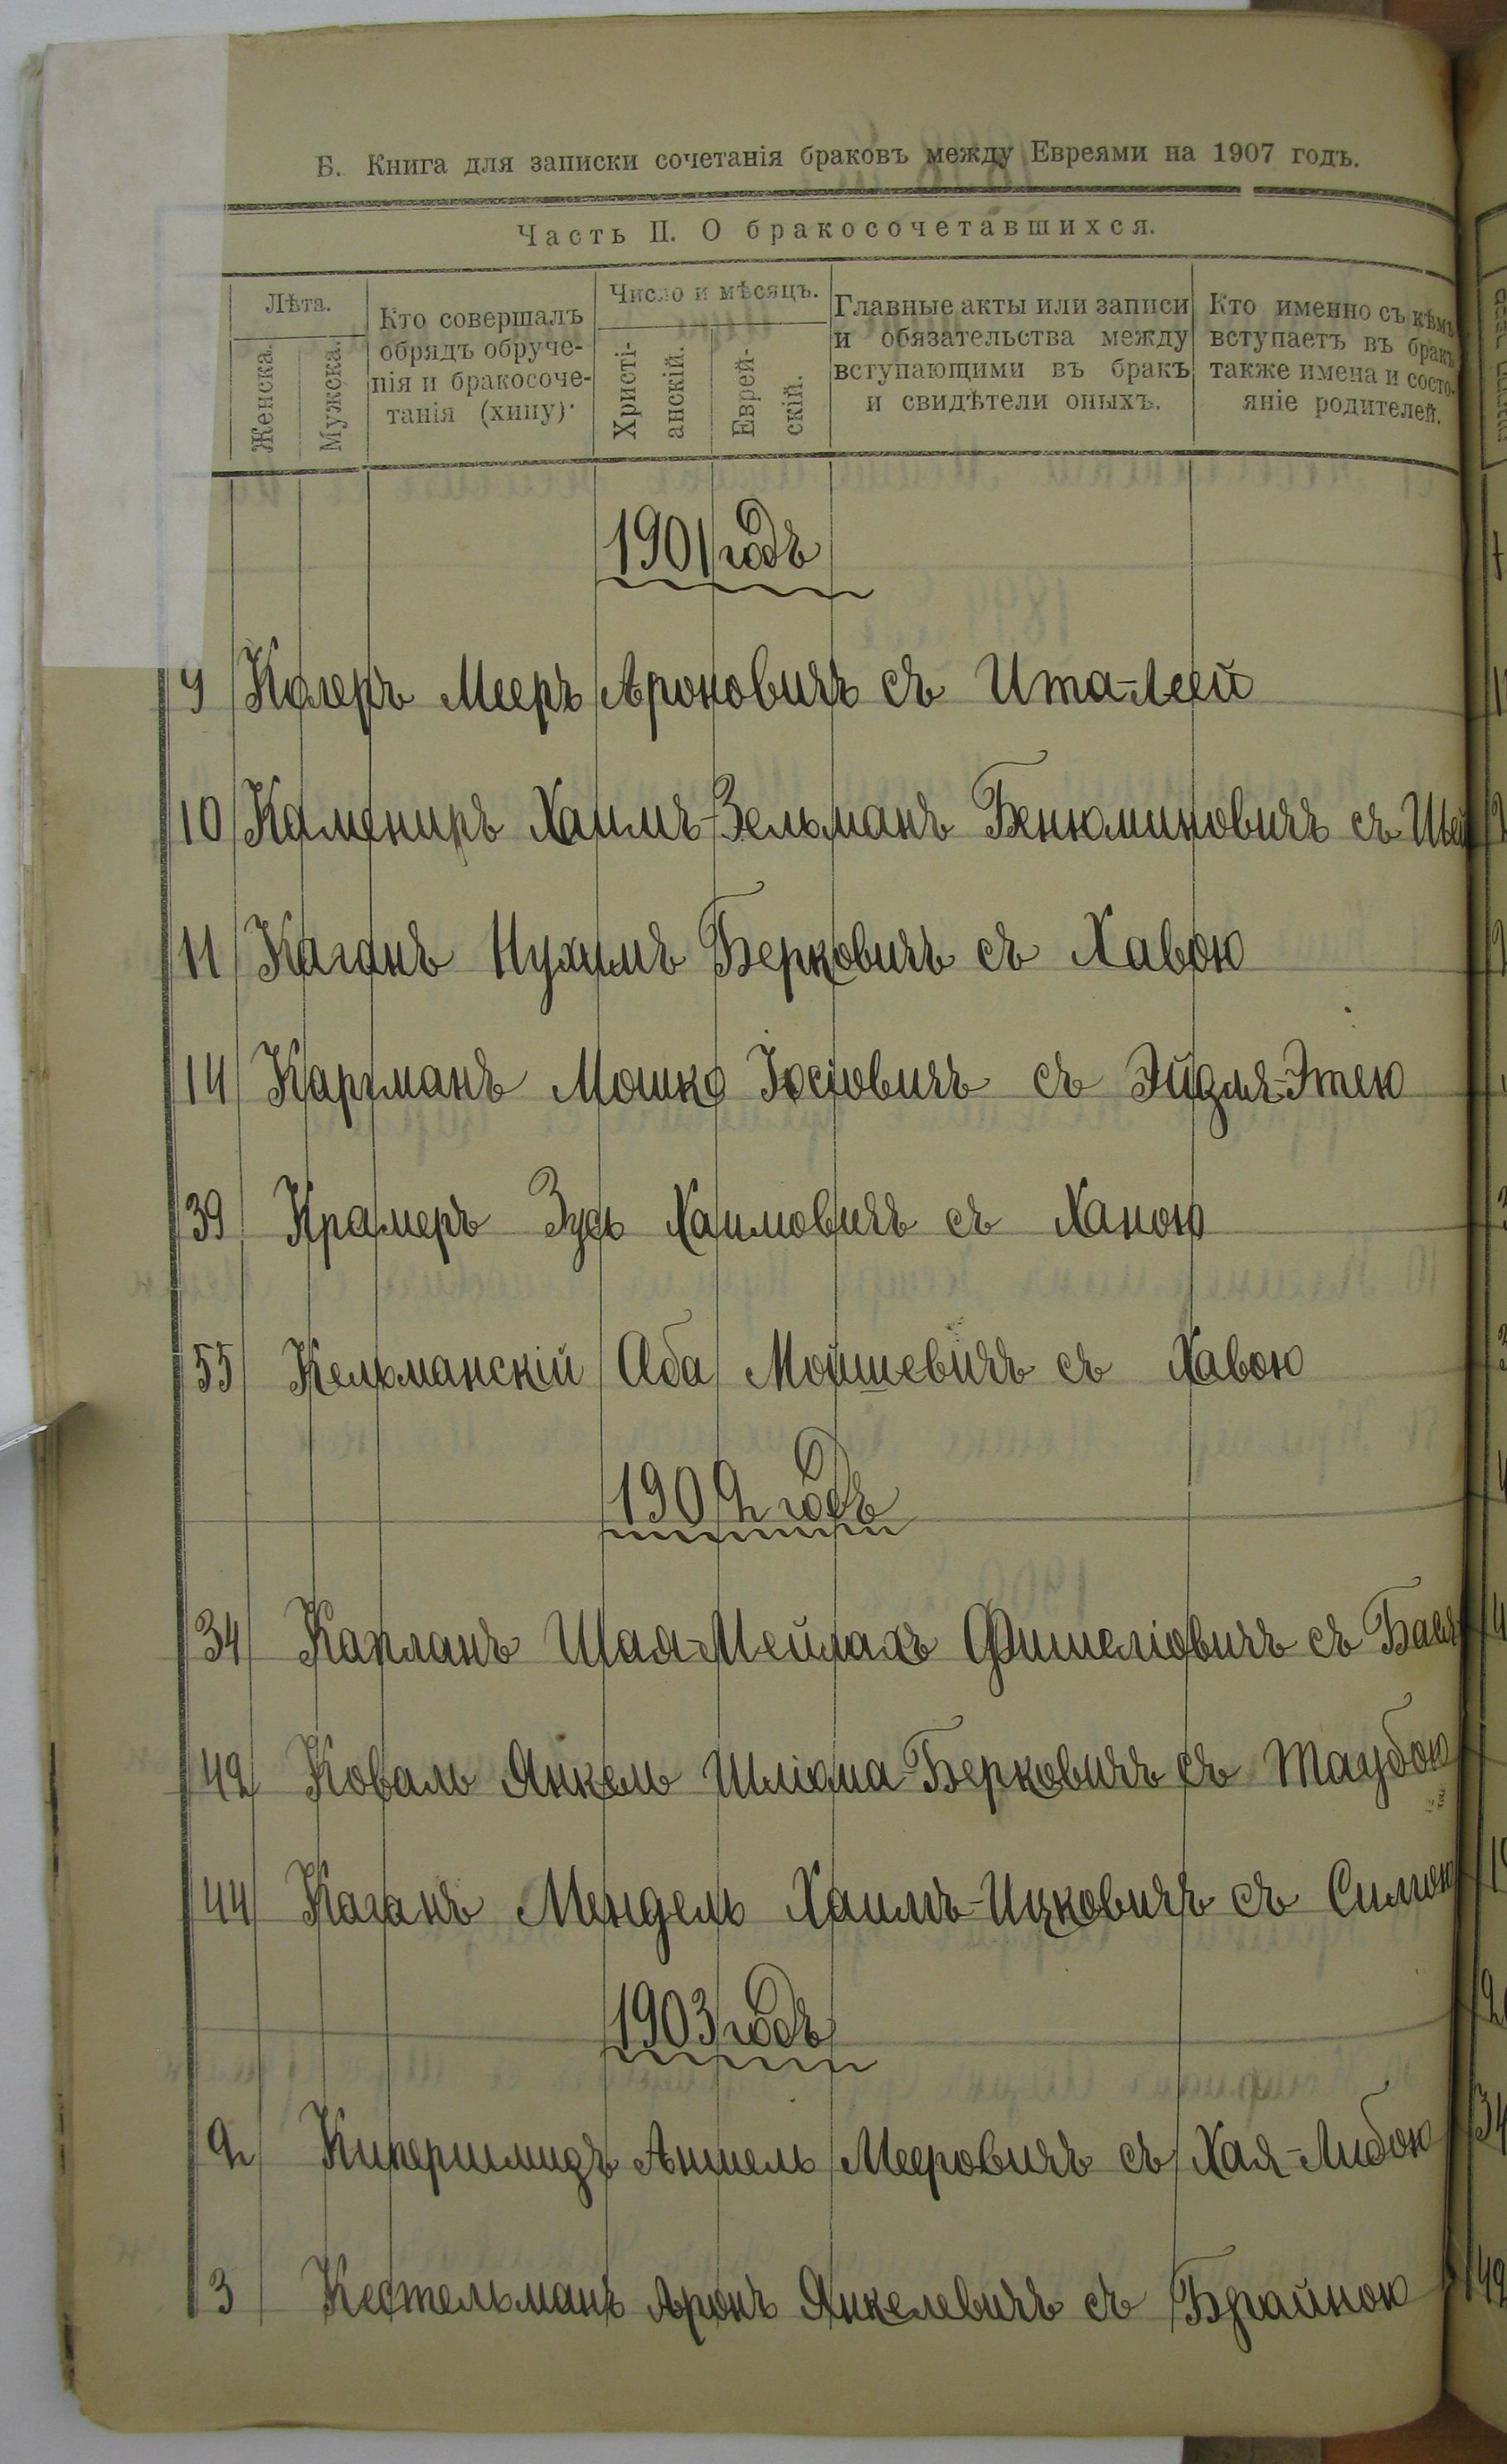 Б. Книга для записки сочетанія браковъ между Евреями на 1907 годъ.
Часть II. О бракосочетавшихся.
Лѣта.
Женска.
Мужска.
Кто совершалъ
обрядъ обруче-
нія и бракосоче-
танія (хипу)
Число и мѣсяцъ.
Христі-
анскій.
Еврей-
скій.
Главные акты или записи
и обязательства между
вступающими въ бракъ
и свидѣтели оныхъ.
Кто именно съ кѣмъ
вступаетъ въ бракъ
также имена и состо-
яніе родителей.
1901 годъ
9 Колеръ Мееръ Ароновичъ съ Ита-Леей
10 Камениръ Хаимъ-Зельманъ Бенюминовичъ съ Шей
11 Каганъ Нухимъ Берковичъ съ Хавою
14 Каргманъ Мошко Іосіовичъ съ Эйдля-Этею
39 Крамеръ Зусь Хаимовичъ съ Ханою
55 Кельманскій Аба Мойшевичъ съ Хавою
1902 годъ
34 Капланъ Шая-Мейлахъ Фишеліовичъ съ Бася
42 Коваль Янкель Шліома-Берковичъ съ Таубою
44 Каганъ Мендель Хаимъ-Ицковичъ съ Симою
1903 годъ
2 Кипершмидъ Аншель Мееровичъ съ Хая-Либою
3 Кестельманъ Аронъ Янкелевичъ съ Брайною